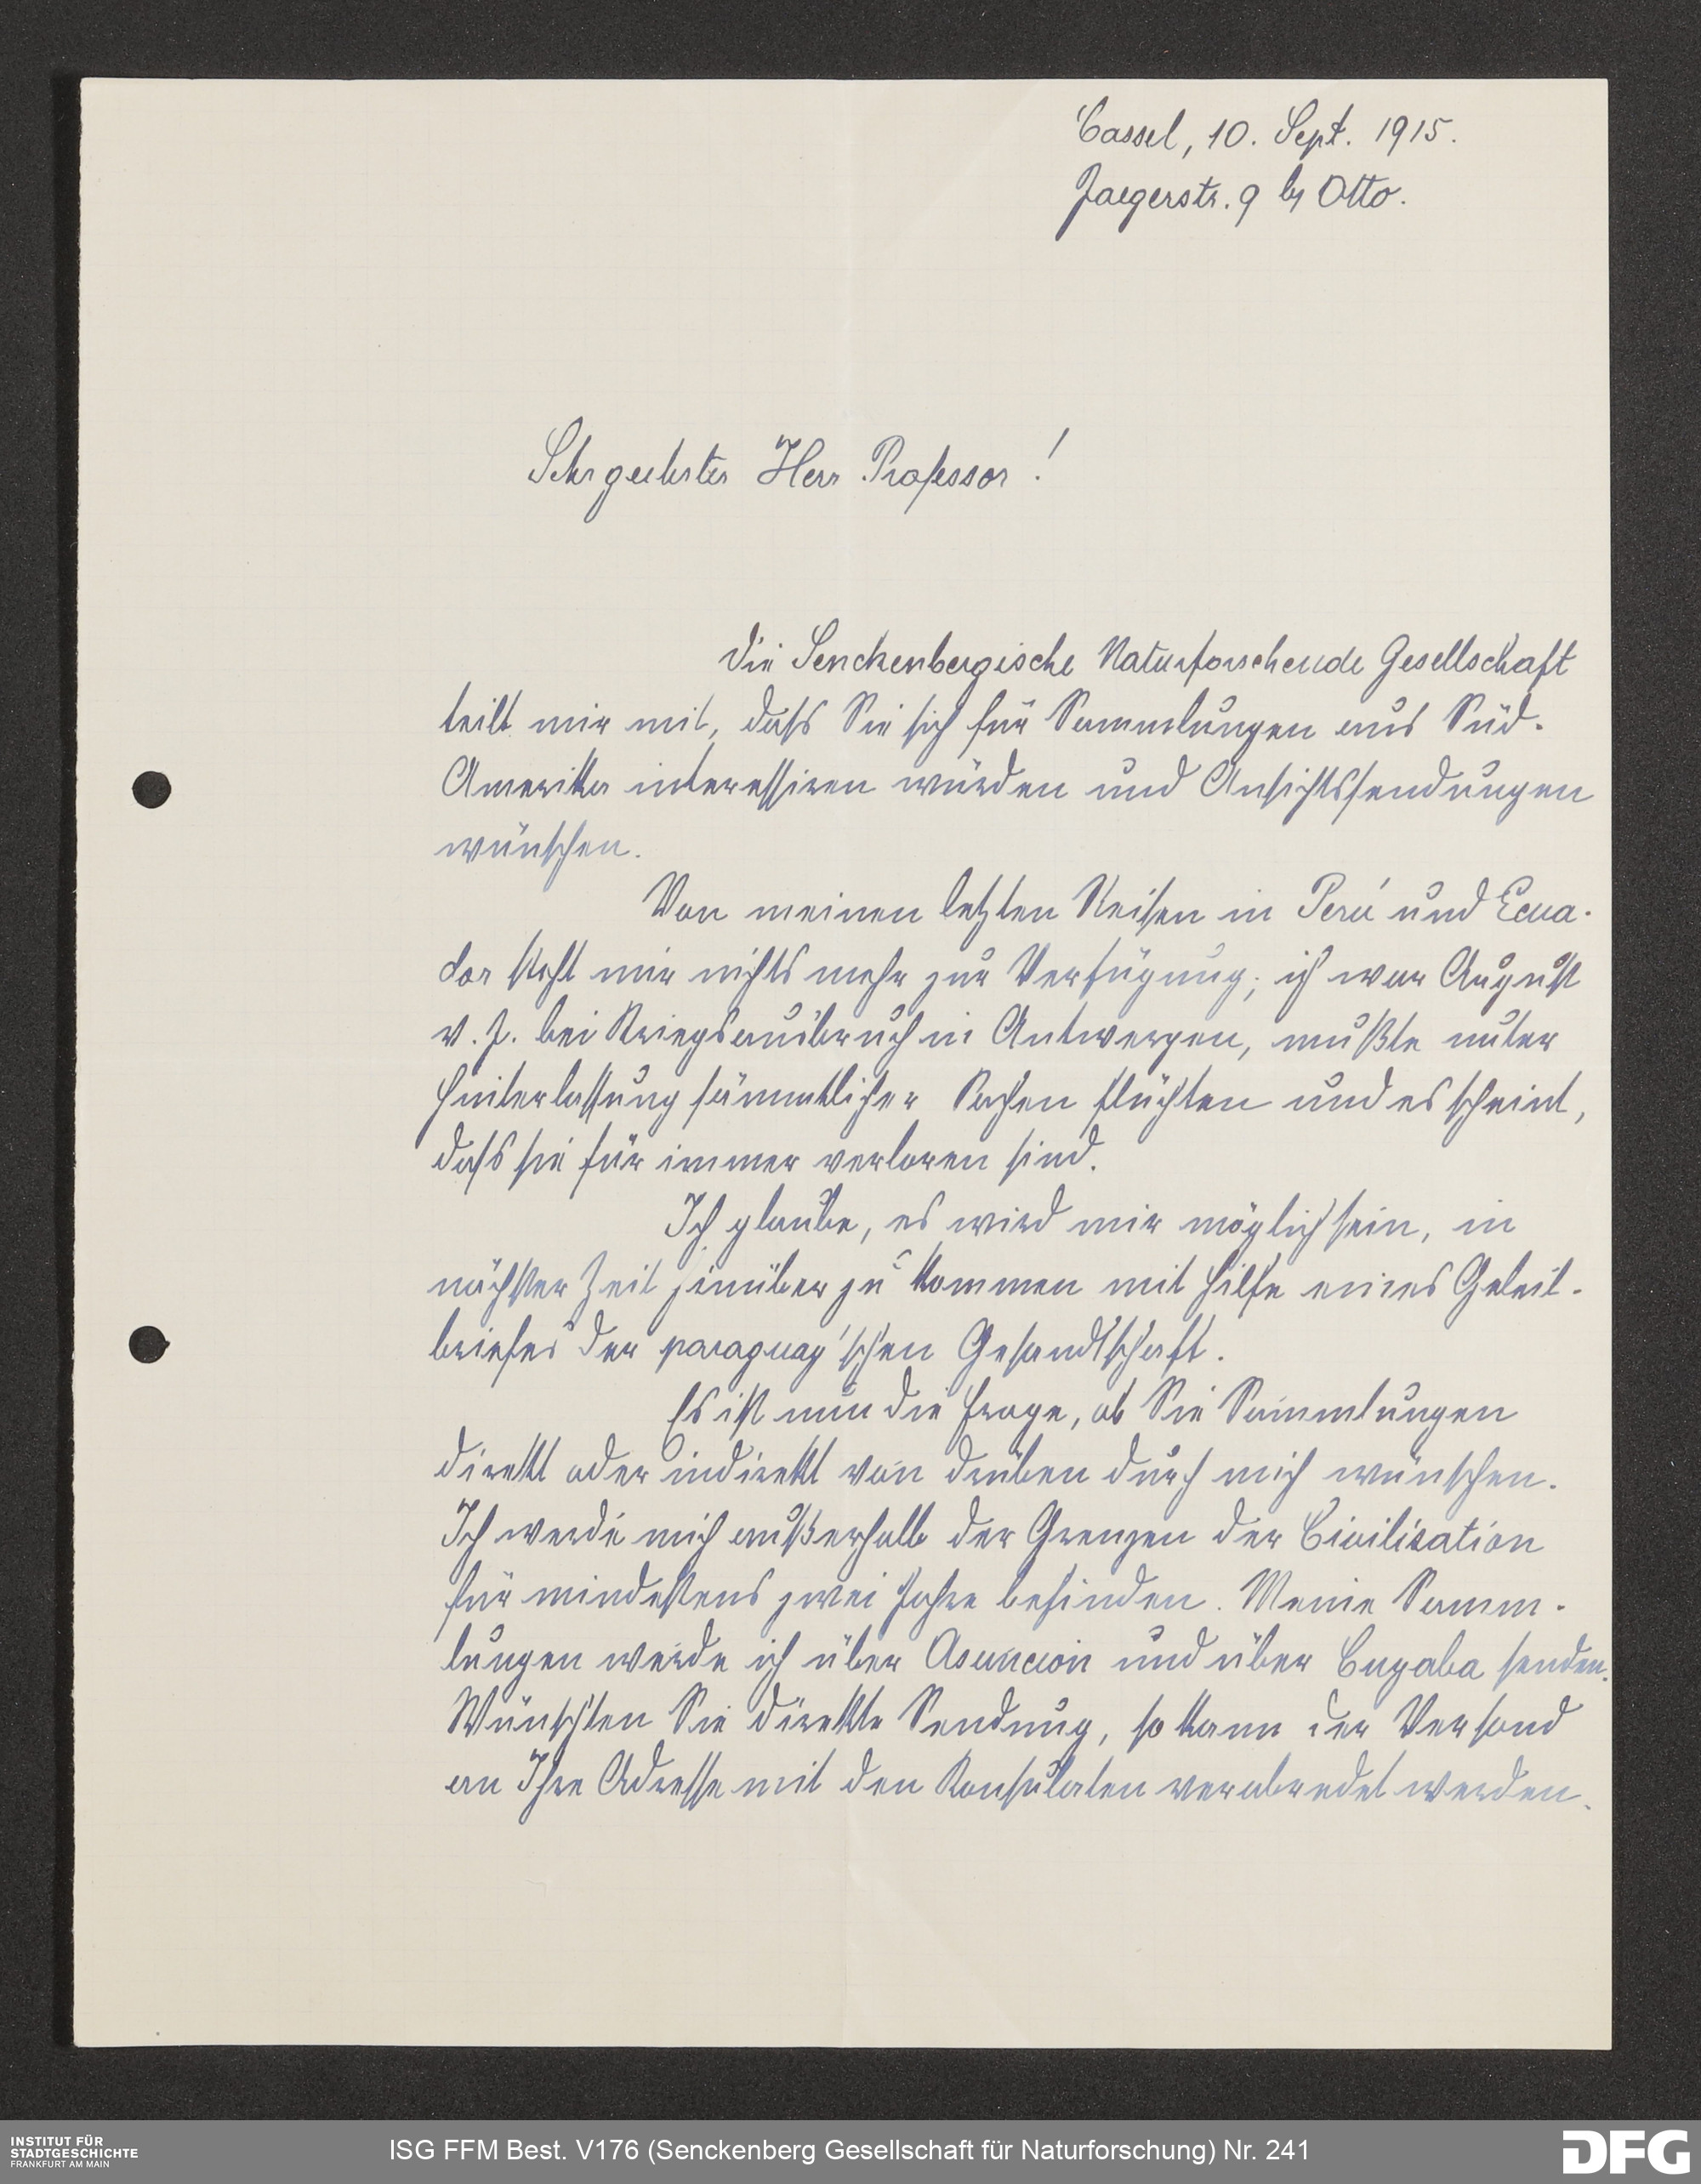 Cassel, 10. Sept. 1915.
Jaegerstr. 9 by Otto.
Sehr geehrter Herr Professor!
Die Senckenbergische Naturforschende Gesellschaft
teilt mir mit, dass Sie sich für Sammlungen aus Süd-
Amerika interessiren würden und Ansichtssendungen
wünschen.
Von meinen letzten Reisen in Perú und Ecua-
dor steht mir nichts mehr zur Verfügung; ich war August
v. J. bei Kriegsausbruch in Antwerpen, mußte unter
Hinterlassung sämmtlicher Sachen flüchten und es scheint,
dass sie für immer verloren sind.
Ich glaube, es wird mir möglich sein, in
nächster Zeit hinüber zu kommen mit Hilfe eines Geleit-
briefes der paraguay'schen Gesandtschaft.
Es ist nun die Frage, ob Sie Sammlungen
direkt oder indirekt von drüben durch mich wünschen.
Ich werde mich außerhalb der Grenzen der Civilisation
für mindestens zwei Jahre befinden. Meine Samm-
lungen werde ich über Asuncion und über Cuyaba senden.
Wünschten Sie direkte Sendung, so kann der Versand
an Ihre Adresse mit den Konsulaten verabredet werden.
INSTITUT FÜR
STADTGESCHICHTE
FRANKFURT AM MAIN
ISG FFM Best. V176 (Senckenberg Gesellschaft für Naturforschung) Nr. 241
DFG